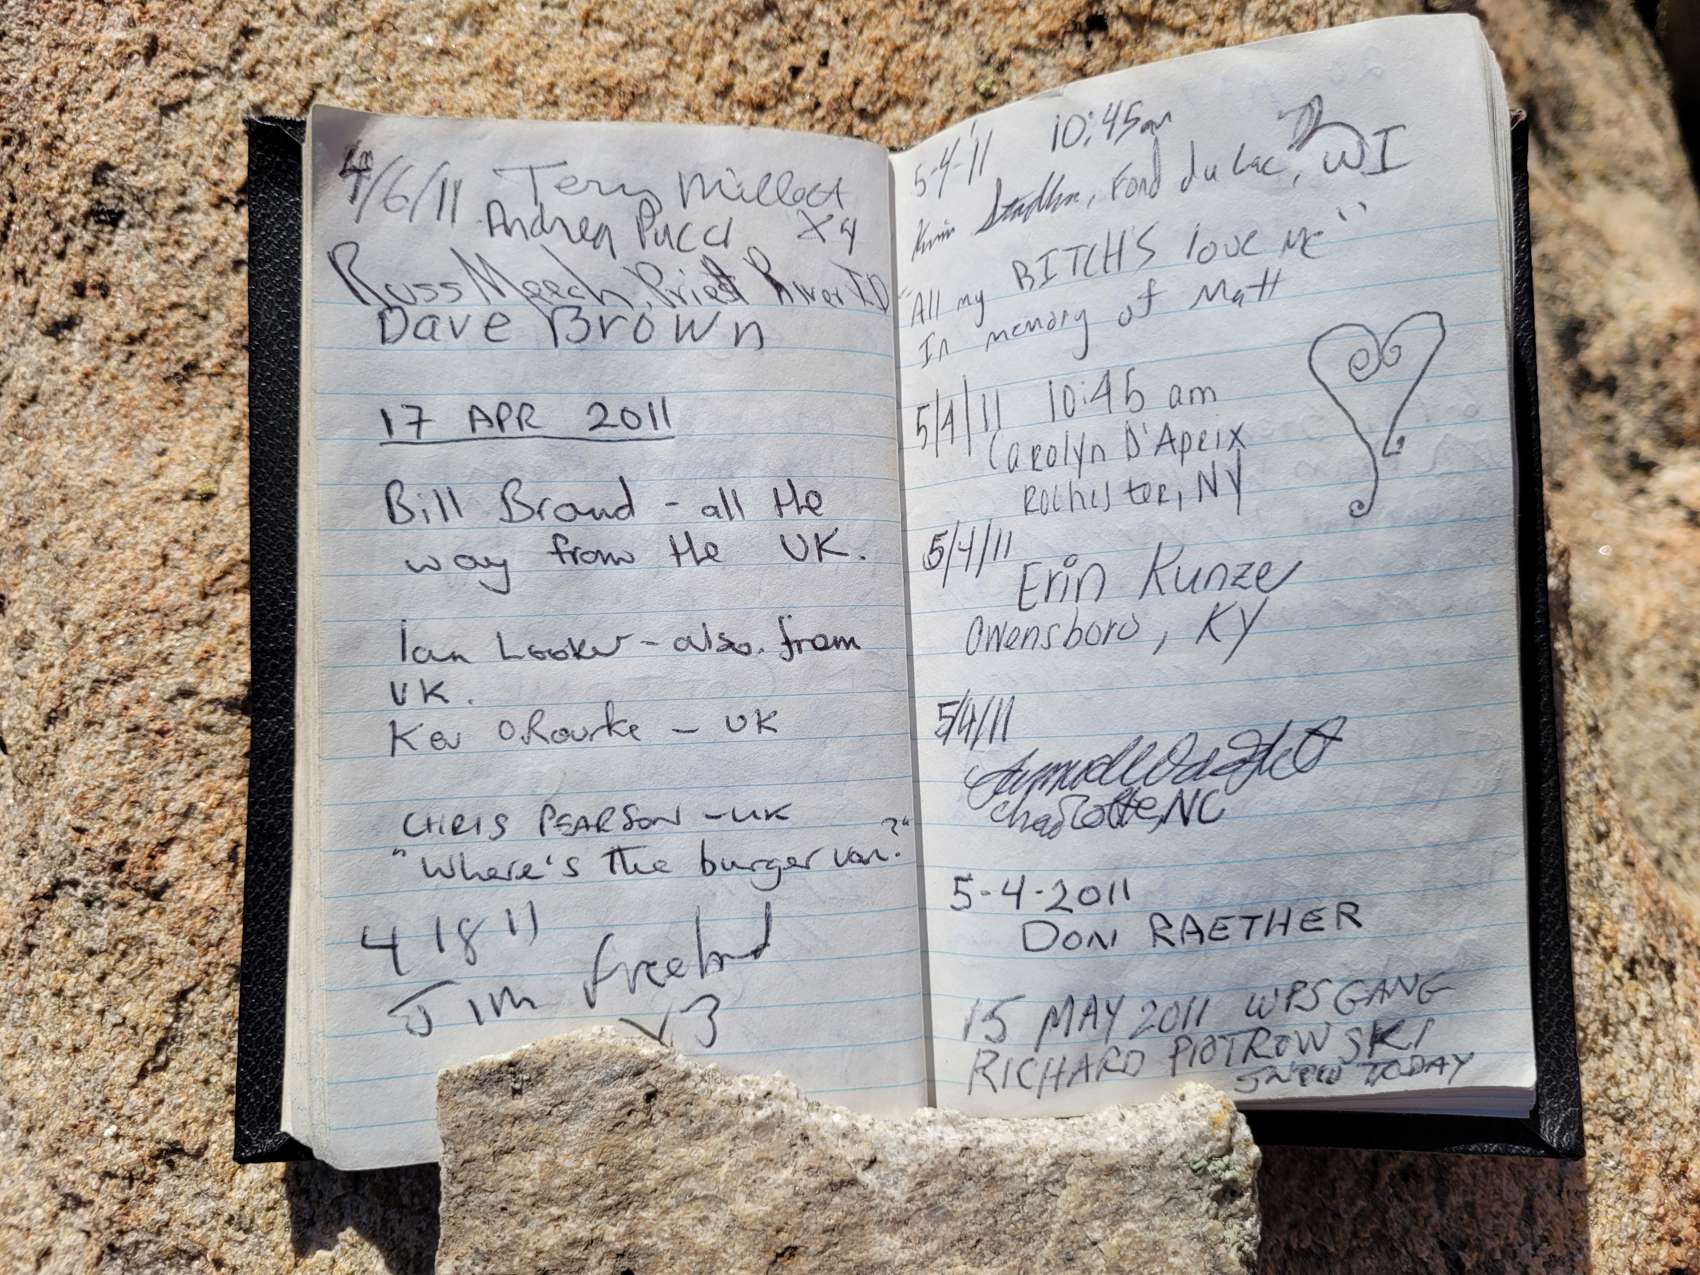 4/6/11 Terry
Andrea Pucci X4
Russ Meech, Priest River ID
Dave Brown
17 APR 2011
Bill Brand - all the
way from the UK.
Ian Looker - also from
UK.
Kev O'Rourke - UK
CHRIS PEARSON - UK
"Where's the burger van?"
4 18 11
Jim Freeland
X3
5-4-11 10:45am
Fond du Lac, WI
"All my BITCH'S love me"
In memory of Matt
5/4/11 10:45 am
Carolyn D'Apeix
Rochester, NY
5/4/11
Erin Kunze
Owensboro, KY
5/4/11
Charlotte, NC
5-4-2011
DON RAETHER
15 MAY 2011 WPS GANG
RICHARD PIOTROWSKI
SNEW TODAY